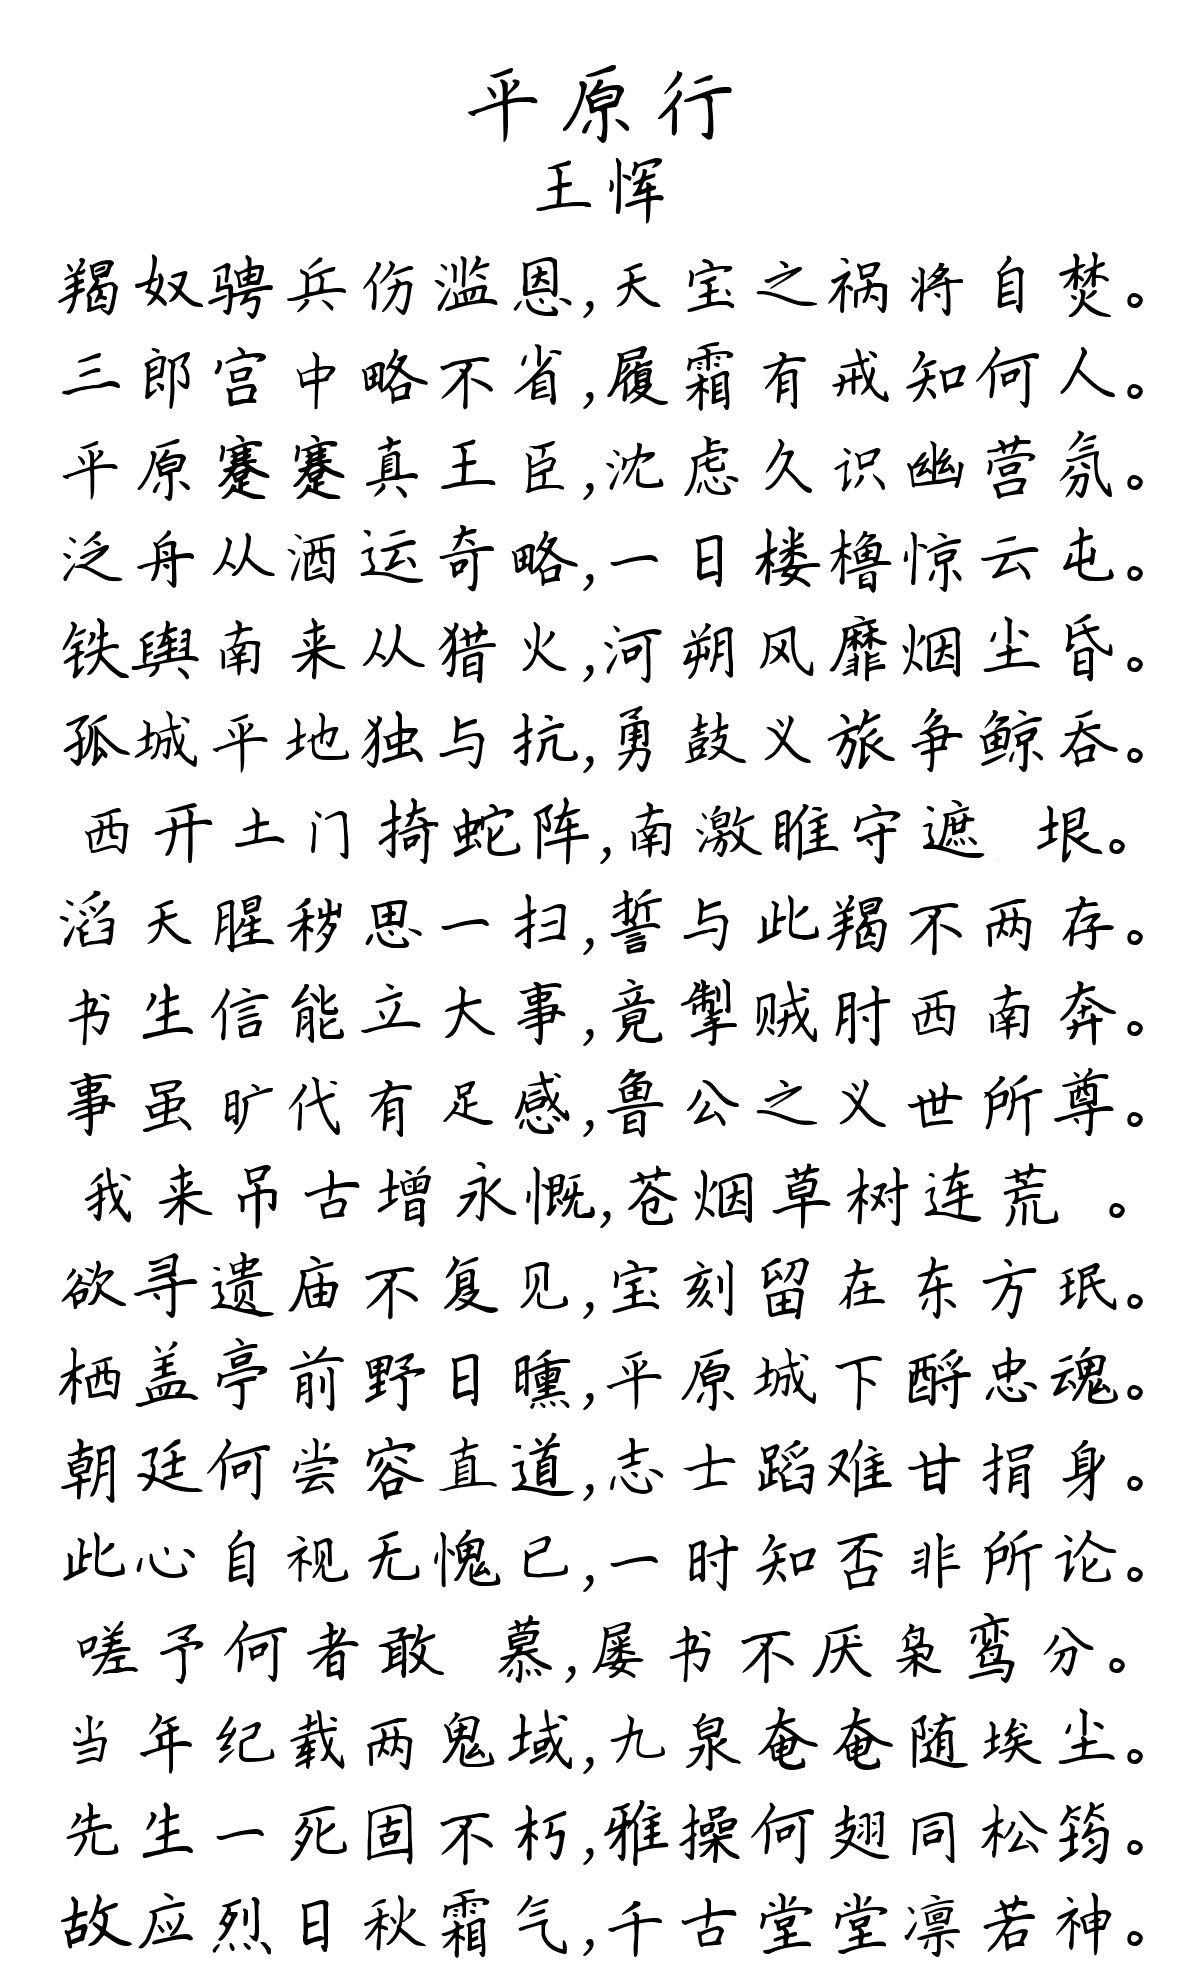 平原行
王恽
羯奴骋兵伤滥恩,天宝之祸将自焚。
三郎宫中略不省,履霜有戒知何人。
平原蹇蹇真王臣,沈虑久识幽营氛。
泛舟从酒运奇略,一日楼橹惊云屯。
铁舆南来从猎火,河朔风靡烟尘昏。
孤城平地独与抗,勇鼓义旅争鲸吞。
西开土门掎蛇阵,南激睢守遮 垠。
滔天腥秽思一扫,誓与此羯不两存。
书生信能立大事,竟掣贼肘西南奔。
事虽旷代有足感,鲁公之义世所尊。
我来吊古增永慨,苍烟草树连荒 。
欲寻遗庙不复见,宝刻留在东方珉。
栖盖亭前野日曛,平原城下酹忠魂。
朝廷何尝容直道,志士蹈难甘捐身。
此心自视无愧已,一时知否非所论。
嗟予何者敢 慕,屡书不厌枭鸾分。
当年纪载两鬼域,九泉奄奄随埃尘。
先生一死固不朽,雅操何翅同松筠。
故应烈日秋霜气,千古堂堂凛若神。